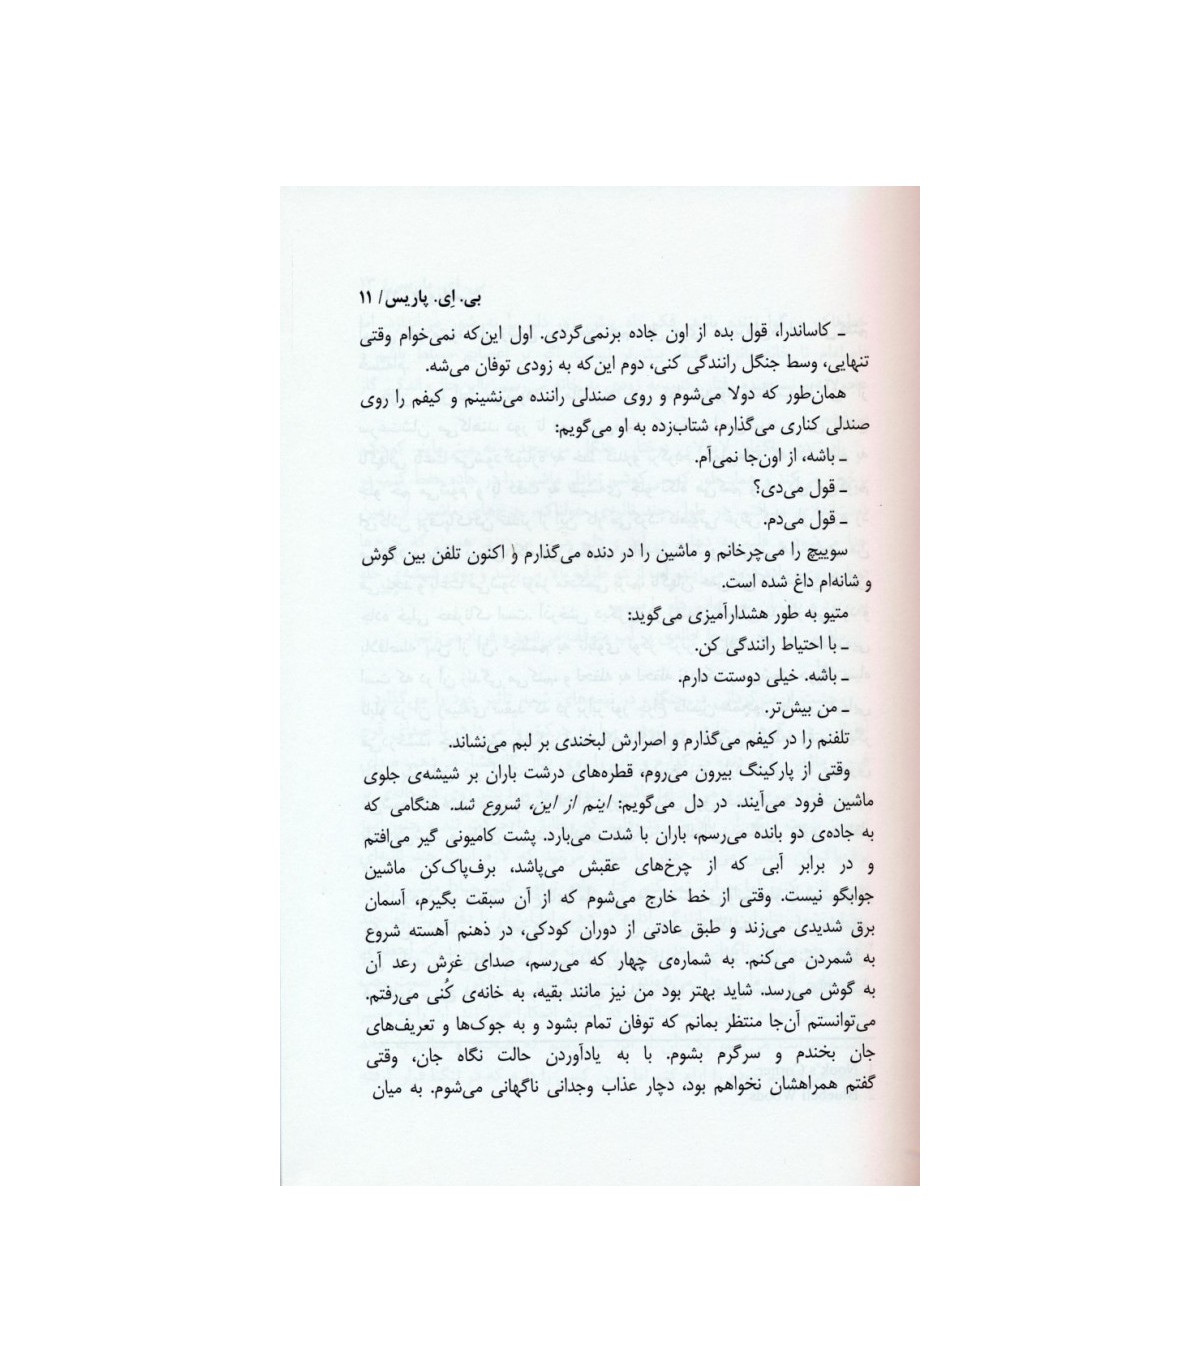 بی. اِی. پاریس/ ۱۱
ـ کاساندرا، قول بده از اون جاده برنمی‌گردی. اول این‌که نمی‌خوام وقتی
تنهایی، وسط جنگل رانندگی کنی، دوم این‌که به زودی توفان می‌شه.
همان‌طور که دولا می‌شوم و روی صندلی راننده می‌نشینم و کیفم را روی
صندلی کناری می‌گذارم، شتاب‌زده به او می‌گویم:
ـ باشه، از اون‌جا نمی‌آم.
ـ قول می‌دی؟
ـ قول می‌دم.
سوییچ را می‌چرخانم و ماشین را در دنده می‌گذارم و اکنون تلفن بین گوش
و شانه‌ام داغ شده است.
متیو به طور هشدارآمیزی می‌گوید:
ـ با احتیاط رانندگی کن.
ـ باشه. خیلی دوستت دارم.
ـ من بیش‌تر.
تلفنم را در کیفم می‌گذارم و اصرارش لبخندی بر لبم می‌نشاند.
وقتی از پارکینگ بیرون می‌روم، قطره‌های درشت باران بر شیشه‌ی جلوی
ماشین فرود می‌آیند. در دل می‌گویم: اینم از این، شروع شد. هنگامی که
به جاده‌ی دو بانده می‌رسم، باران با شدت می‌بارد. پشت کامیونی گیر می‌افتم
و در برابر آبی که از چرخ‌های عقبش می‌پاشد، برف‌پاک‌کن ماشین
جوابگو نیست. وقتی از خط خارج می‌شوم که از آن سبقت بگیرم، آسمان
برق شدیدی می‌زند و طبق عادتی از دوران کودکی، در ذهنم آهسته شروع
به شمردن می‌کنم. به شماره‌ی چهار که می‌رسم، صدای غرش رعد آن
به گوش می‌رسد. شاید بهتر بود من نیز مانند بقیه، به خانه‌ی کُنی می‌رفتم.
می‌توانستم آن‌جا منتظر بمانم که توفان تمام بشود و به جوک‌ها و تعریف‌های
جان بخندم و سرگرم بشوم. با به یادآوردن حالت نگاه جان، وقتی
گفتم همراهشان نخواهم بود، دچار عذاب وجدانی ناگهانی می‌شوم. به میان